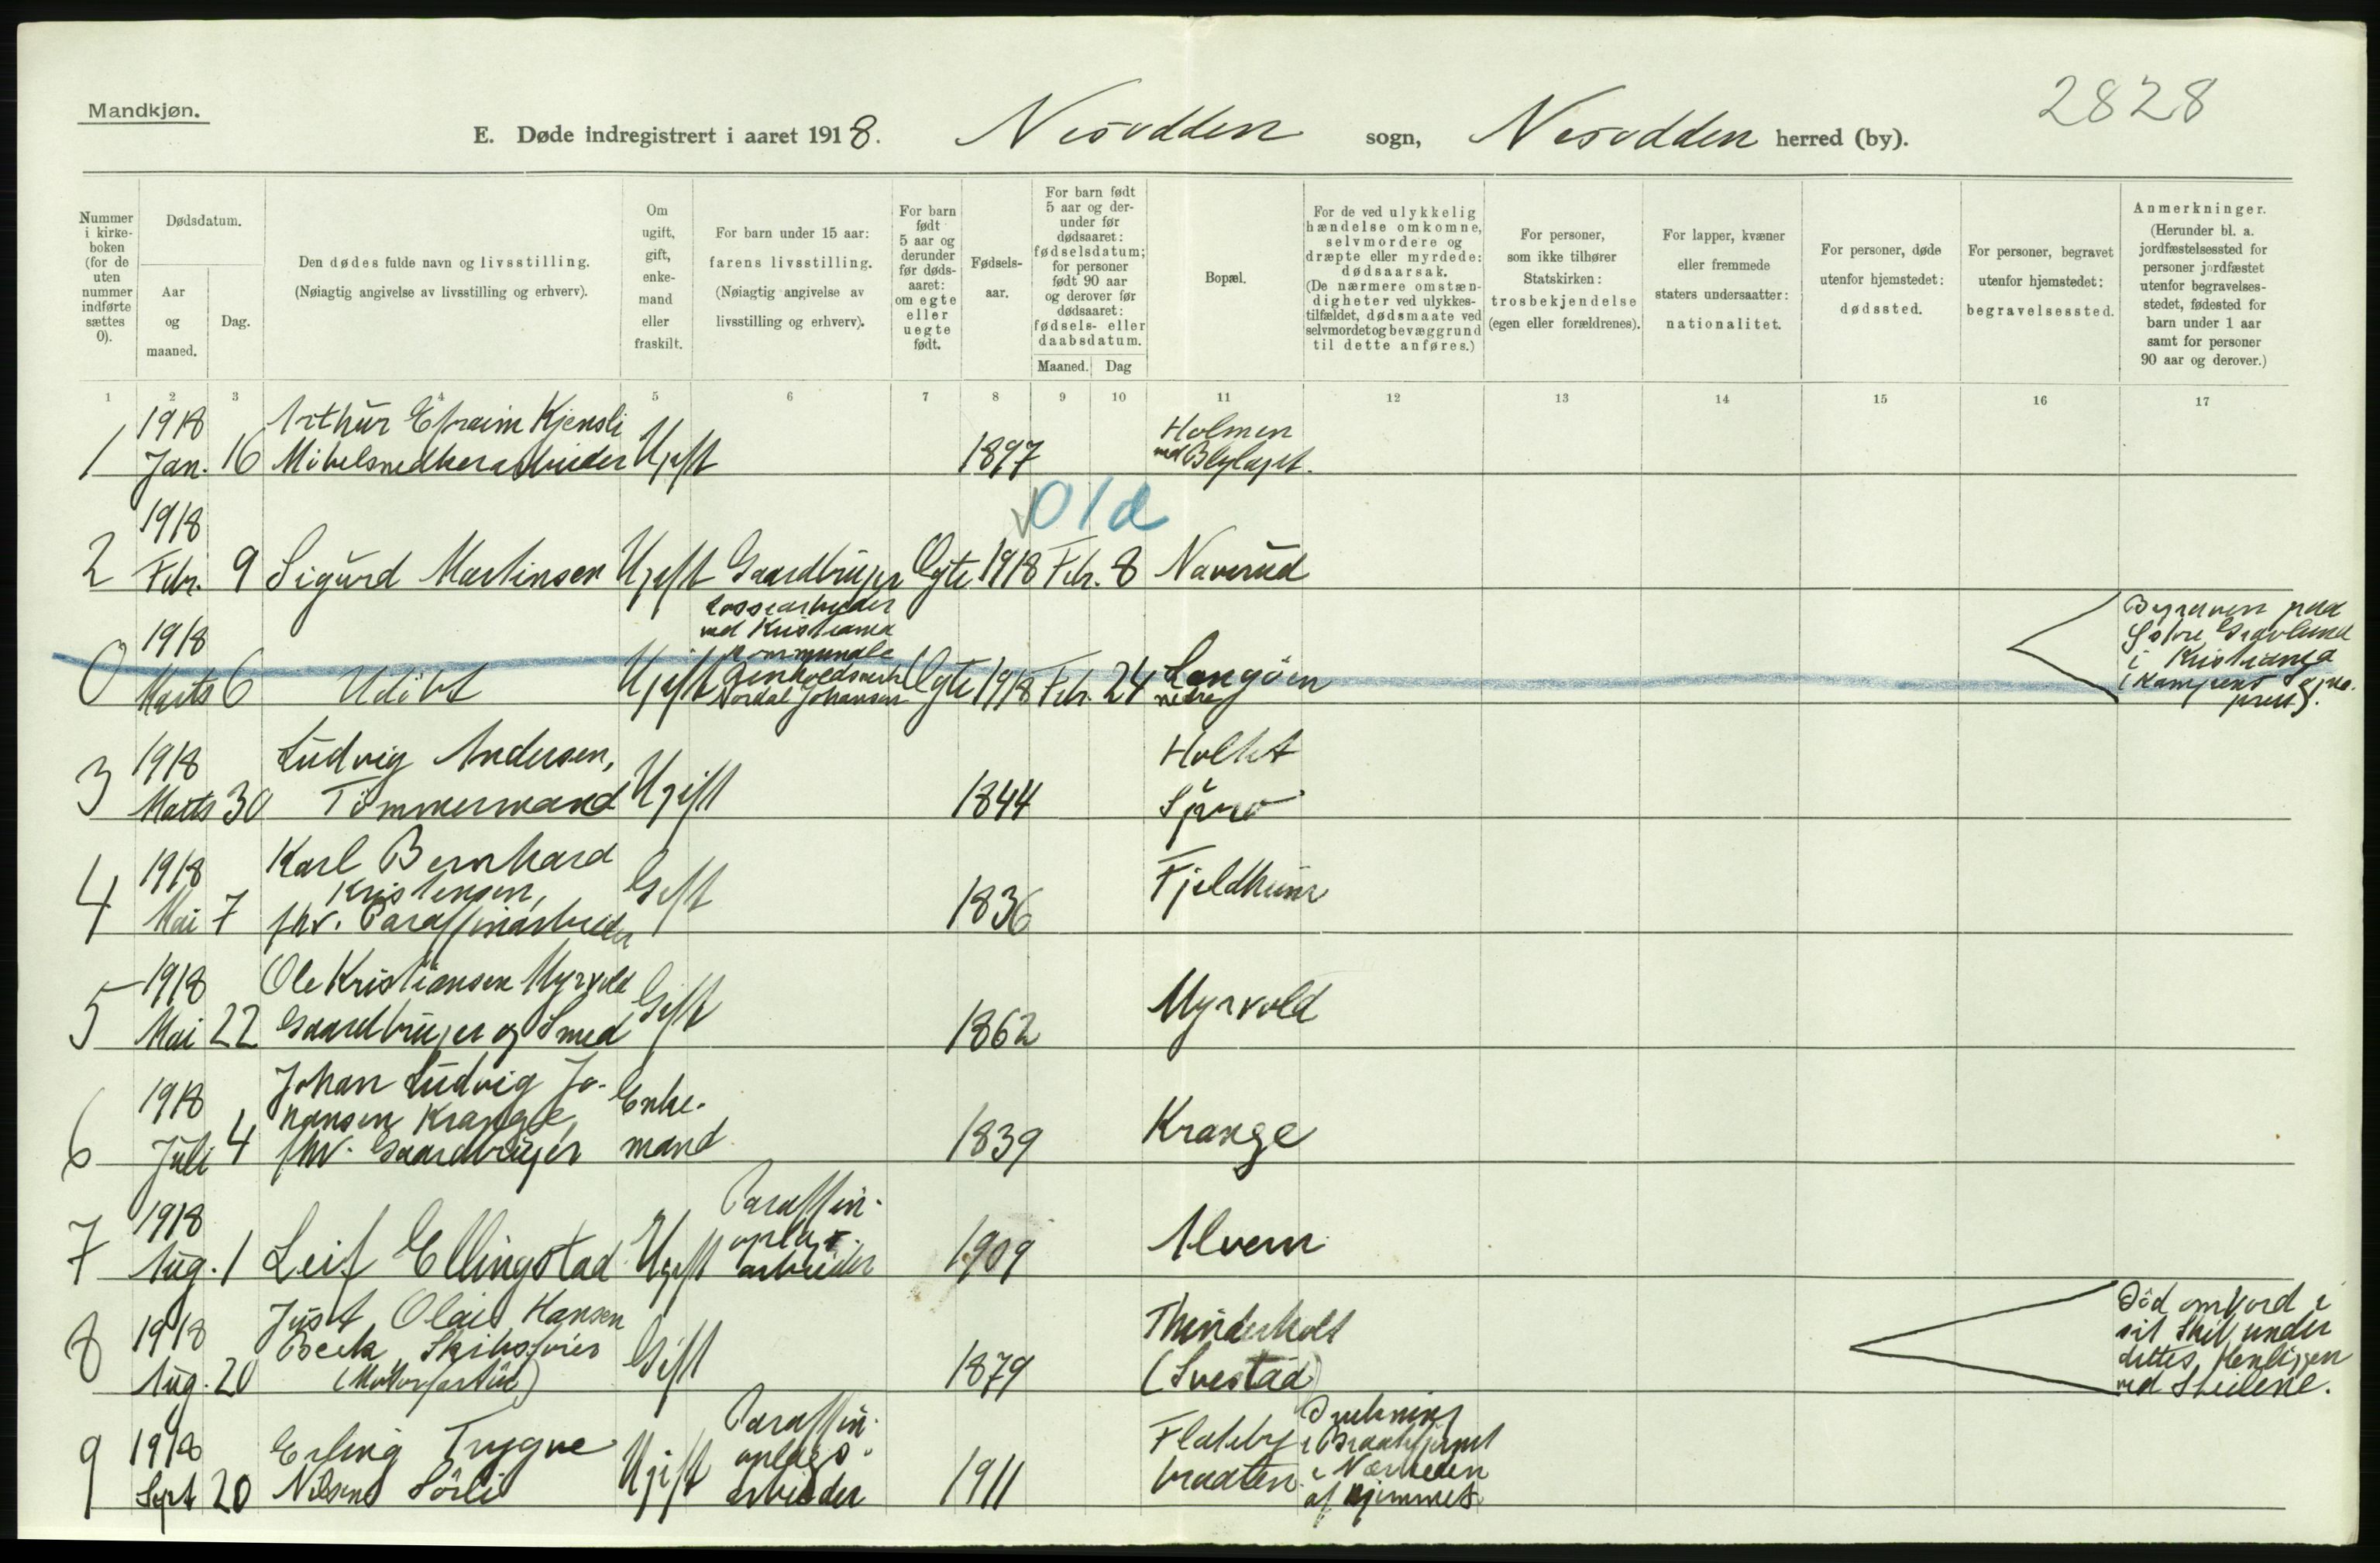 Mandkjøn.
2828
E. Døde indregistrert i aaret 1918. Nesodden sogn, Nesodden herred (by).
Nummer i kirke-boken (for de uten nummer indførte sættes 0).
Dødsdatum.
Aar og maaned.
Dag.
Den dødes fulde navn og livsstilling.
(Nøiagtig angivelse av livsstilling og erhverv).
Om ugift, gift, enke-mand eller fraskilt.
For barn under 15 aar: farens livsstilling. (Nøiagtig angivelse av livsstilling og erhverv).
For barn født 5 aar og derunder før døds-aaret: om egte eller uegte født.
Fødsels-aar.
For barn født 5 aar og der-under før dødsaaret: fødselsdatum; for personer født 90 aar og derover før dødsaaret: fødsels- eller daabsdatum.
Maaned.
Dag
Bopæl.
For de ved ulykkelig hændelse omkomne, selvmordere og dræpte eller myrdede: dødsaarsak. (De nærmere omstæn-digheter ved ulykkes-tilfældet, dødsmaate ved selvmordet og bevæggrund til dette anføres.)
For personer, som ikke tilhører Statskirken: trosbekjendelse (egen eller forældrenes).
For lapper, kvæner eller fremmede staters undersaatter: nationalitet.
For personer, døde utenfor hjemstedet: dødssted.
For personer, begravet utenfor hjemstedet: begravelsessted.
Anmerkninger. (Herunder bl. a. jordfæstelsessted for personer jordfæstet utenfor begravelses-stedet, fødested for barn under 1 aar samt for personer 90 aar og derover.)
1 2 3 4 5 6 7 8 9 10 11 12 13 14 15 16 17
1918 Arthur Efraim Kjensli Holmen
1 Jan. 16 Møbelsnedkerarbeider Ugift 1897 ved Blylaget.
1918 01d
2 Febr. 9 Sigurd Martinsen Ugift Gaardbruger Egte 1918 Febr. 8 Naverud
1918 Lossearbeider ved Kristiania kommunale
0 Marts 6 Udöbt Ugift Renholdsverk Nordal Johansen Egte 1918 Febr. 24 Langöen nedre
Begraven paa Söstre Gravlund i Kristiania
1918 Ludvig Andersen, Holtet
3 Marts 30 Tömmermand Ugift 1844
1918 Karl Bernhard Kristensen, Fjeldheim
4 Mai 7 fhv. Paraffinarbeider Gift 1836
1918 Ole Kristiansen Myrvold
5 Mai 22 Gaardbruger og Smed Gift 1862 Myrvold
1918 Johan Ludvig Jo-hansen Krange, Enke-
6 Juli 4 fhv. Gaardbruger mand 1839 Krange
1918 Paraffin-oplags-
7 Aug. 1 Leif Ellingstad Ugift arbeider 1909 Alvern
1918 Just Olai Hansen
8 Aug. 20 Beck Skibsförer (Motorfartöi) Gift 1879 (Svestad)
Död ombord i sit Skib under dettes Henliggen ved Steilene.
1918 Erling Trygve Paraffin-oplags-
9 Sept 20 Nilsen Sörli Ugift arbeider 1911 Flateby braaten
Drukning i Nærheden af Hjemmet.